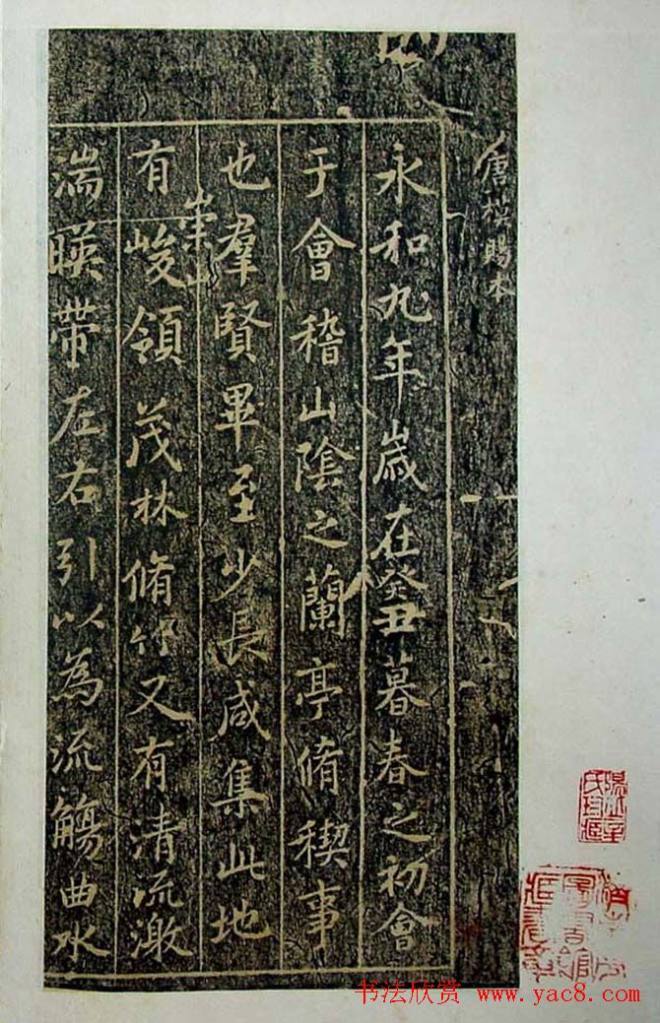 唐模賜本
永和九年歲在癸丑暮春之初會
于會稽山陰之蘭亭脩稧事
也羣賢畢至少長咸集此地
有崇山峻領茂林脩竹又有清流激
湍暎帶左右引以為流觴曲水
书法欣赏 www.yac8.com